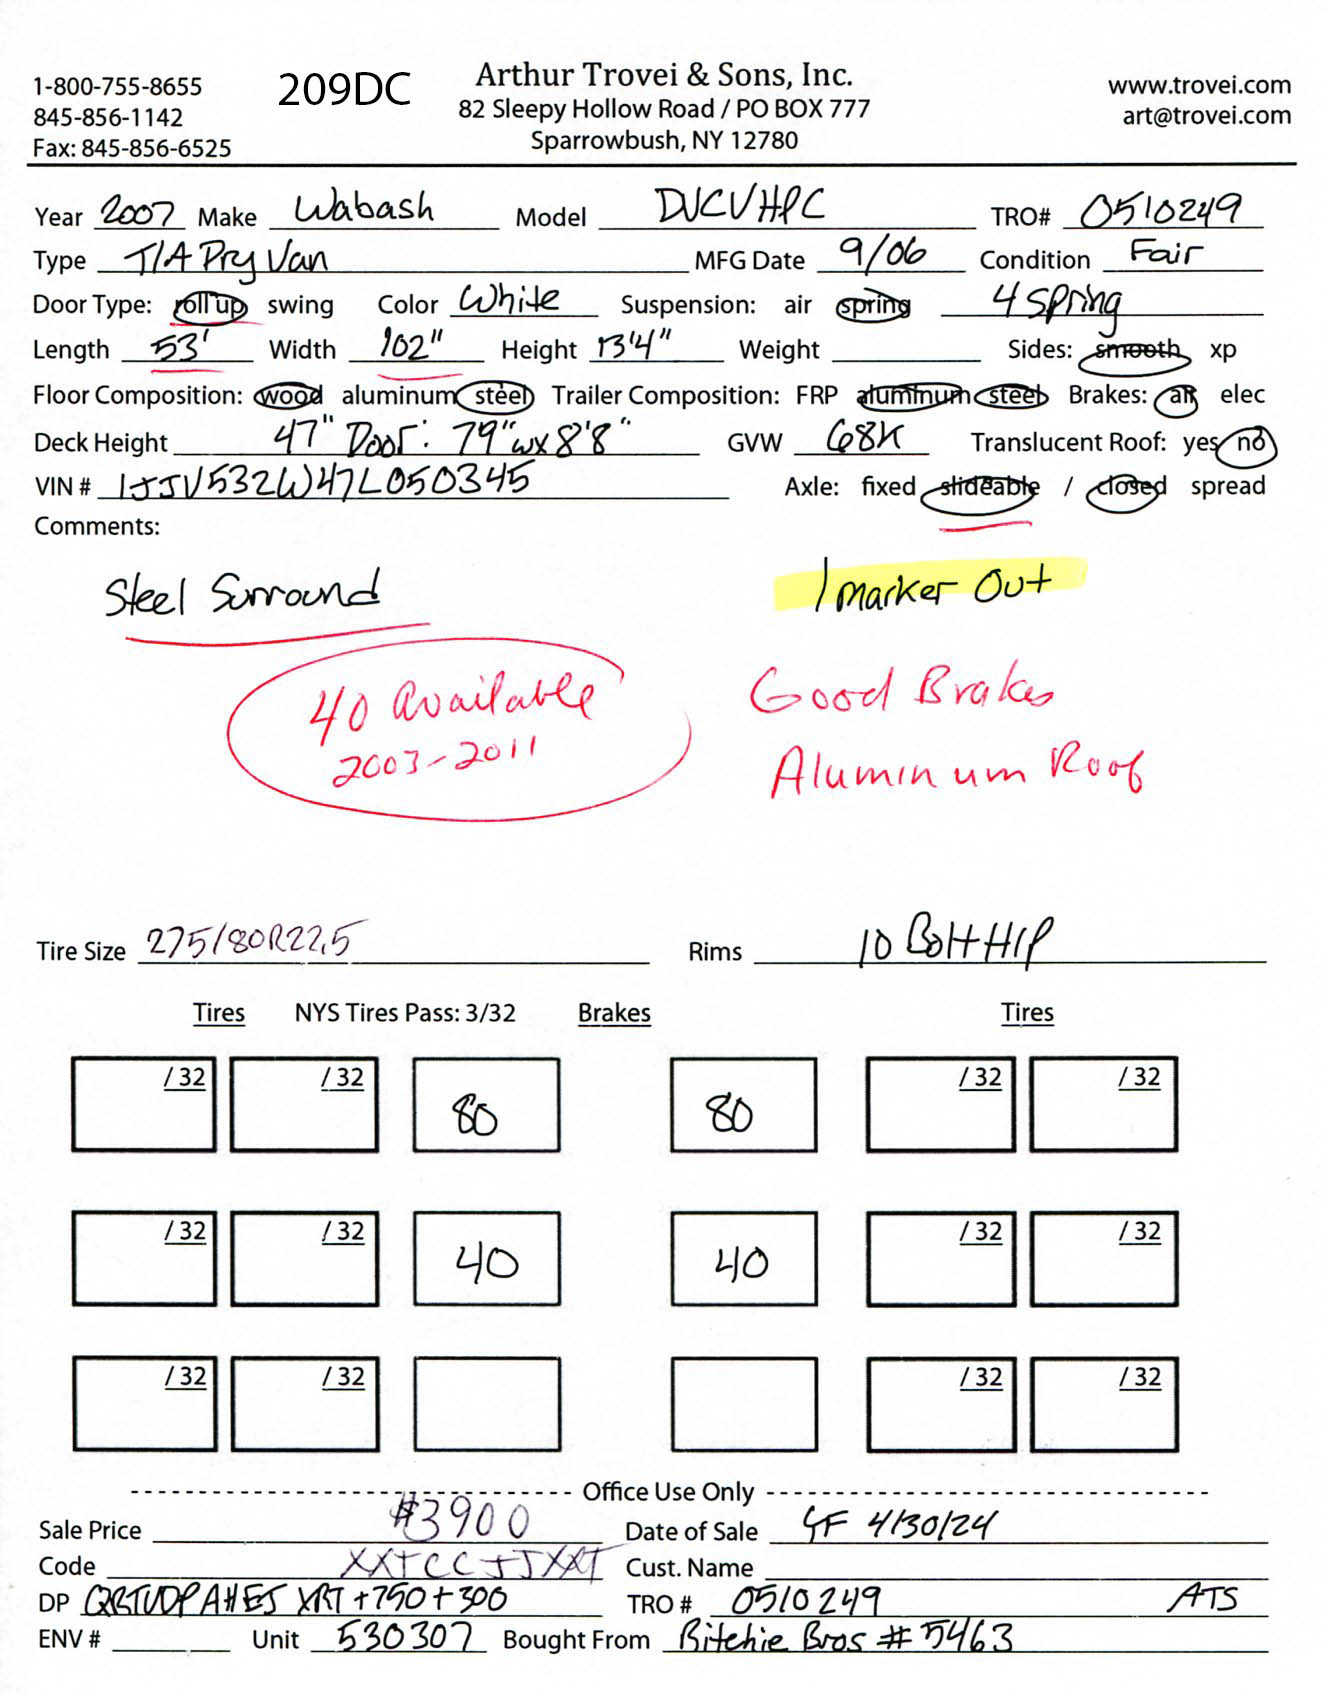 1-800-755-8655 209DC Arthur Trovei & Sons, Inc. www.trovei.com
845-856-1142 82 Sleepy Hollow Road / PO BOX 777 art@trovei.com
Fax: 845-856-6525 Sparrowbush, NY 12780
Year 2007 Make Wabash Model DVCVHPC TRO# 0510249
Type T/A Dry Van MFG Date 9/06 Condition Fair
Door Type: roll up swing Color White Suspension: air spring 4 Spring
Length 53' Width 102" Height 13'4" Weight Sides: smooth xp
Floor Composition: wood aluminum steel Trailer Composition: FRP aluminum steel Brakes: air elec
Deck Height 47" Door: 79"w x 8'8" GVW 68K Translucent Roof: yes no
VIN # 1JJV532W47L050345 Axle: fixed slideable / closed spread
Comments:
Steel Surround 1 marker Out
40 Available Good Brakes
2003-2011 Aluminum Roof
Tire Size 275/80R22.5 Rims 10 Bolt H/P
Tires NYS Tires Pass: 3/32 Brakes Tires
/ 32 / 32 80 80 / 32 / 32
/ 32 / 32 40 40 / 32 / 32
/ 32 / 32 / 32 / 32
Office Use Only
Sale Price $3900 Date of Sale GF 4/30/24
Code Cust. Name
DP XRT +750+300 TRO # 0510249 ATS
ENV # Unit 530307 Bought From Ritchie Bros # 5463